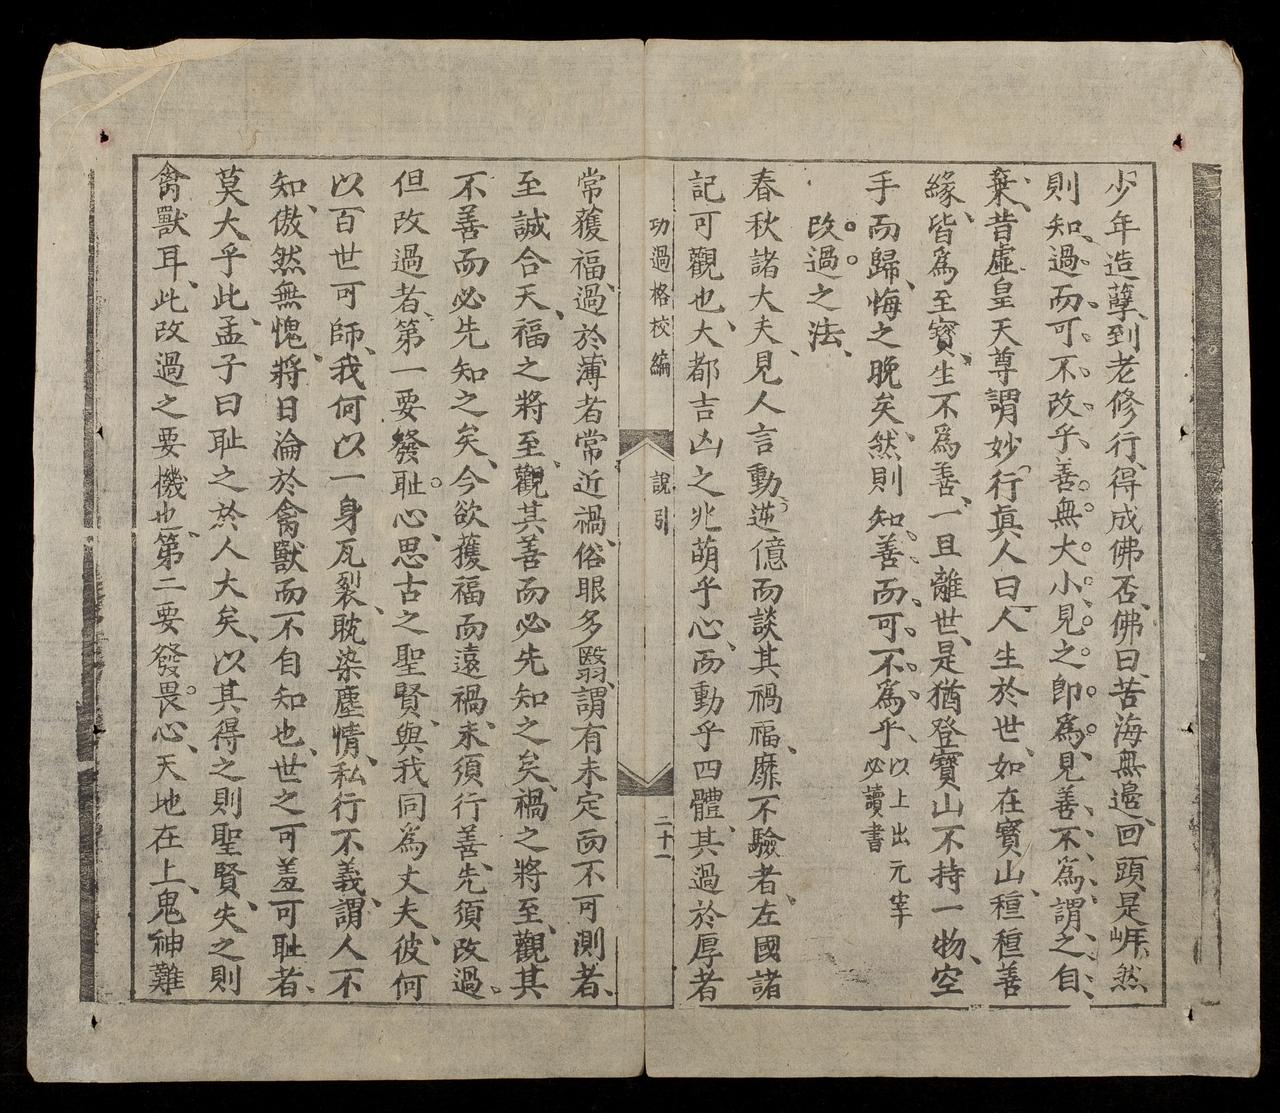 少年造孽、到老修行、得成佛否、佛曰、苦海無邊、回頭是崕、然
則知過而可不改乎、善無大小、見之卽為、見善不為、謂之自
棄、昔虛皇天尊謂妙行真人曰、人生於世、如在寳山、種種善
緣、皆為至寳、生不為善、一旦離世、是猶登寳山不持一物、空
手而歸、悔之晚矣、然則知善而可不為乎、以上出元宰
必讀書
改過之法、
春秋諸大夫、見人言動、逆億而談其禍福、靡不驗者、左國諸
記可觀也、大都吉凶之兆萌乎心、而動乎四體、其過於厚者
功過格校編
說引
二十一
常獲福、過於薄者常近禍、俗眼多翳、謂有未定而不可測者、
至誠合天、福之將至、觀其善而必先知之矣、禍之將至、觀其
不善而必先知之矣、今欲獲福而遠禍、未須行善、先須改過、
但改過者、第一要發耻心、思古之聖賢、與我同為丈夫、彼何
以百世可師、我何以一身瓦裂、耽染塵情、私行不義、謂人不
知、傲然無愧、將日淪於禽獸而不自知也、世之可羞可耻者、
莫大乎此、孟子曰耻之於人大矣、以其得之則聖賢、失之則
禽獸耳、此改過之要機也、第二要發畏心、天地在上、鬼神難